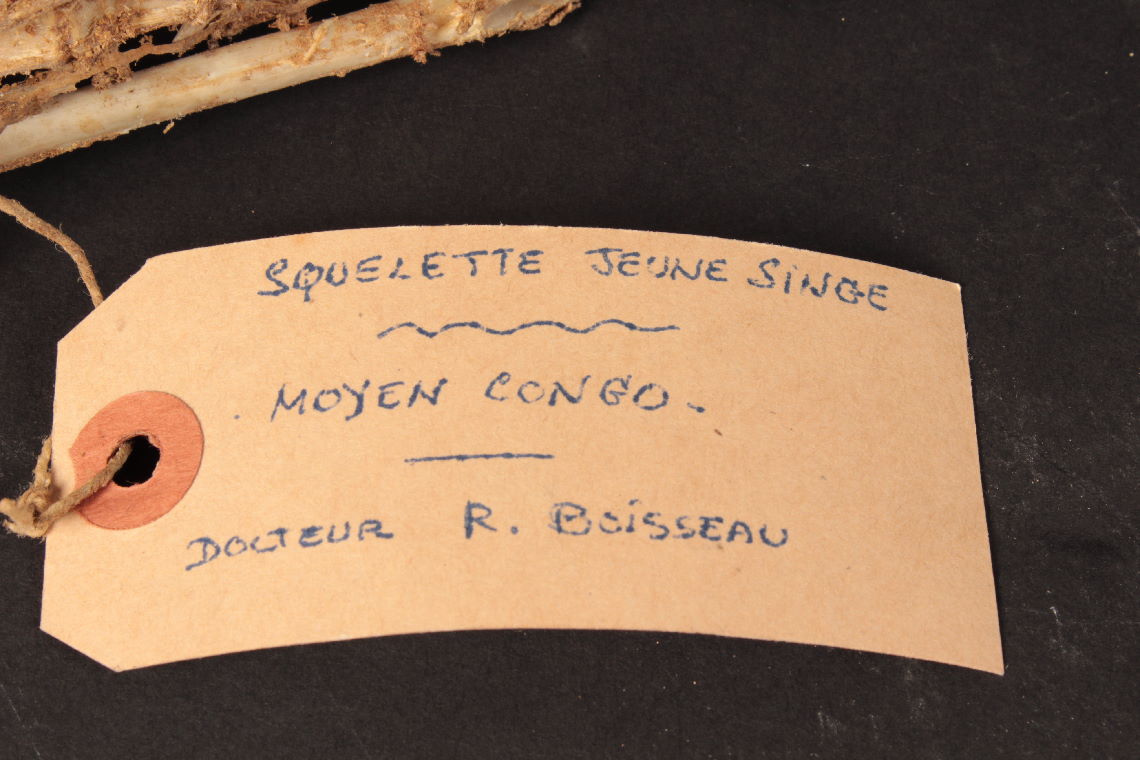 SQUELETTE JEUNE SINGE
MOYEN CONGO.
DOCTEUR R. BOISSEAU